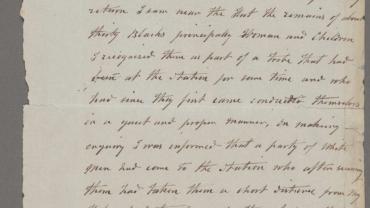 return I saw near the Hut the remains of about
thirty Blacks principally Women and Children
I recognised them as part of a tribe that had
been at the Station for some time and who
had since they first came conducted themselves
in a quiet and proper manner, on making
enquiry I was informed that a party of White
men had come to the Station who after securing
them had taken them a short distance from my